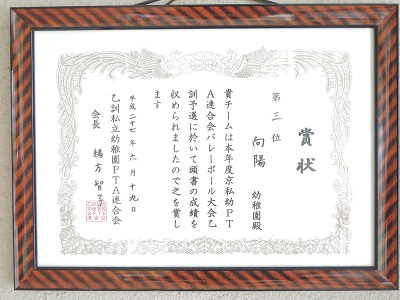 賞状
第三位
向陽 幼稚園殿
貴チームは本年度京私幼PT
A連合会バレーボール大会乙
訓予選に於いて頭書の成績を
収められましたので之を賞し
ます
平成二十七年六月十九日
乙訓私立幼稚園PTA連合会
会長 緒方 智子